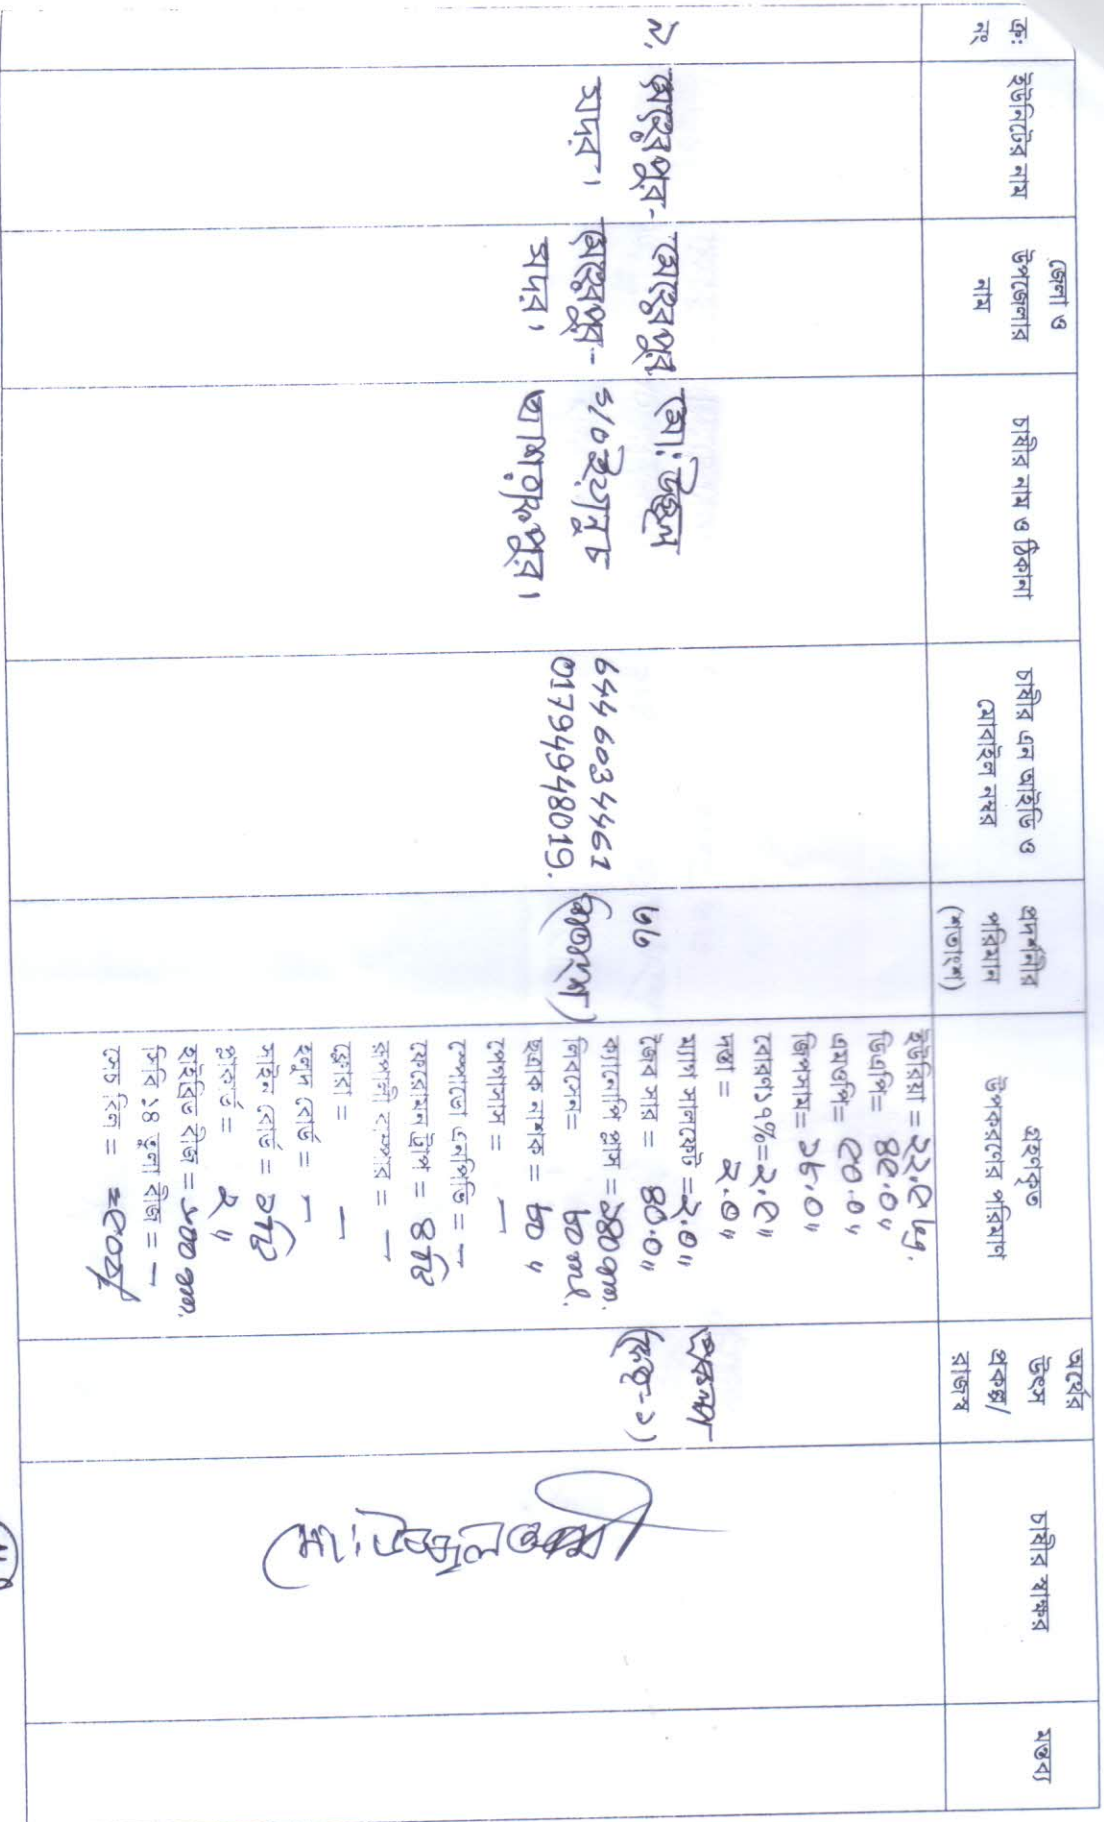 ক্র:
নং
ইউনিটের নাম
জেলা ও
উপজেলার
নাম
চাষীর নাম ও ঠিকানা
চাষীর এন আইডি ও
মোবাইল নম্বর
প্রদর্শনীর
পরিমান
(শতাংশ)
গ্রহণকৃত
উপকরণের পরিমাণ
অর্থের
উৎস
প্রকল্প/
রাজস্ব
চাষীর স্বাক্ষর
মন্তব্য
মেহেরপুর-
সদর।
মেহেরপুর
মেহেরপুর-
সদর।
মো:
S/O
6446034461
01794948019.
৬৬
ইউরিয়া = ২২.৫ kg.
ডিএপি= ৪৫.০"
এমওপি= ৫০.০"
জিপসাম= ১৮.০"
বোরণ১৭%=২.৫"
দস্তা = ২.০"
ম্যাগ সালফেট =২.০"
জৈব সার = ৪০.০"
ক্যানোপি প্লাস = ১৪০ gm.
লিবসেন= ৮০ ml.
ছত্রাক নাশক = ৮০ "
পেগাসাস = —
স্পোডো এনপিভি = —
ফেরোমন ট্রাপ = ৪ টি
রূপালী বাম্পার = —
ফ্লোরা = —
হলুদ বোর্ড = —
সাইন বোর্ড = ১টি
প্লাকার্ড = ২ "
হাইব্রিড বীজ = ৯০০ gm.
সিবি ১৪ তুলা বীজ = —
সেচ বিল =
প্রকল্প